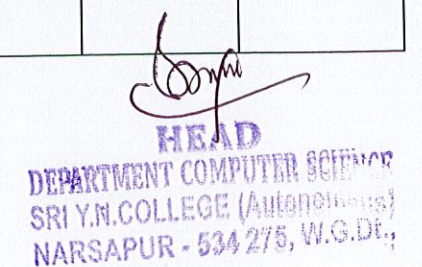 HEAD
DEPARTMENT COMPUTER SCIENCE
SRI Y.N.COLLEGE (Autonomous)
NARSAPUR - 534 275, W.G.Dt.,